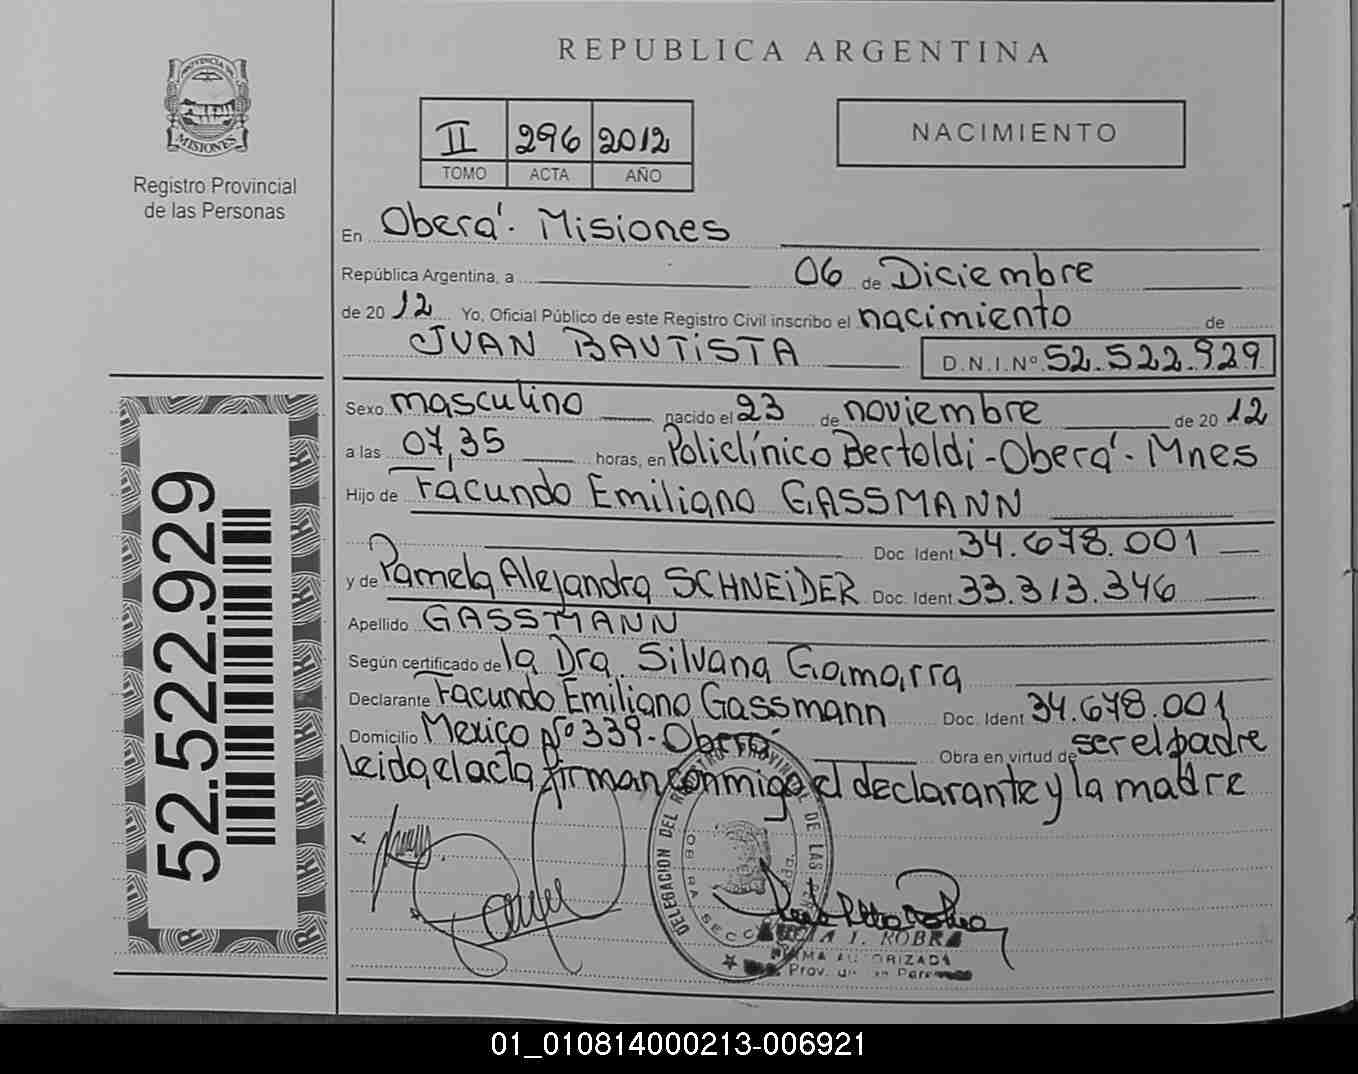 REPUBLICA ARGENTINA
PROVINCIA DE
MISIONES
Registro Provincial
de las Personas
II 296 2012
TOMO ACTA AÑO
NACIMIENTO
En Oberá. Misiones
República Argentina, a 06 de Diciembre
de 2012 Yo, Oficial Público de este Registro Civil inscribo el nacimiento de
JUAN BAUTISTA D.N.I.Nº 52.522.929
Sexo masculino nacido el 23 de noviembre de 2012
a las 07,35 horas, en Policlínico Bertoldi - Oberá - Mnes
Hijo de Facundo Emiliano GASSMANN
Doc. Ident. 34.678.001
y de Pamela Alejandra SCHNEIDER Doc. Ident. 33.313.346
Apellido GASSMANN
Según certificado de la Dra. Silvana Gamarra
Declarante Facundo Emiliano Gassmann Doc. Ident. 34.678.001
Domicilio Mexico Nº 339 - Oberá Obra en virtud de ser el padre
Leida el acta firman conmigo el declarante y la madre
52.522.929
DELEGACION DEL REGISTRO PROVINCIAL DE LAS
I. ROBRA
FIRMA AUTORIZADA
01_010814000213-006921